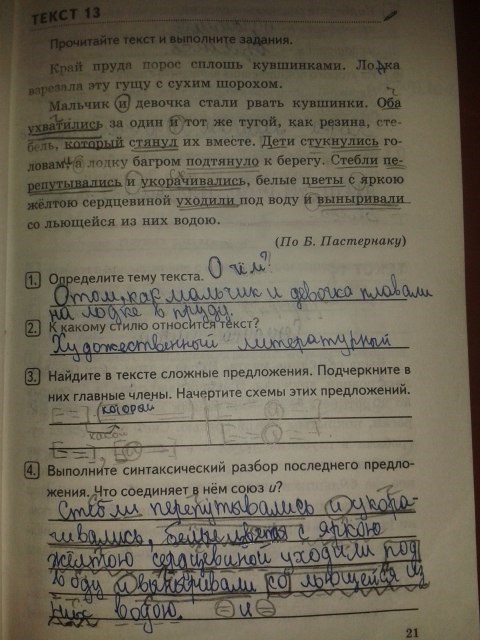 ТЕКСТ 13
Прочитайте текст и выполните задания.
Край пруда порос сплошь кувшинками. Лодка
взрезала эту гущу с сухим шорохом.
Мальчик и девочка стали рвать кувшинки. Оба
ухватились за один и тот же тугой, как резина, сте-
бель, который стянул их вместе. Дети стукнулись го-
ловами, а лодку багром подтянуло к берегу. Стебли пе-
репутывались и укорачивались, белые цветы с яркою
жёлтою сердцевиной уходили под воду и выныривали
со льющейся из них водою.
(По Б. Пастернаку)
1. Определите тему текста. О чём?
О том, как мальчик и девочка плавали
на лодке в пруду.
2. К какому стилю относится текст?
Художественный литературный
3. Найдите в тексте сложные предложения. Подчеркните в
них главные члены. Начертите схемы этих предложений.
который
какой
4. Выполните синтаксический разбор последнего предло-
жения. Что соединяет в нём союз и?
Стебли перепутывались и укора-
чивались, белые цветы с яркою
жёлтою сердцевиной уходили под
воду и выныривали со льющейся из
них водою. и
21